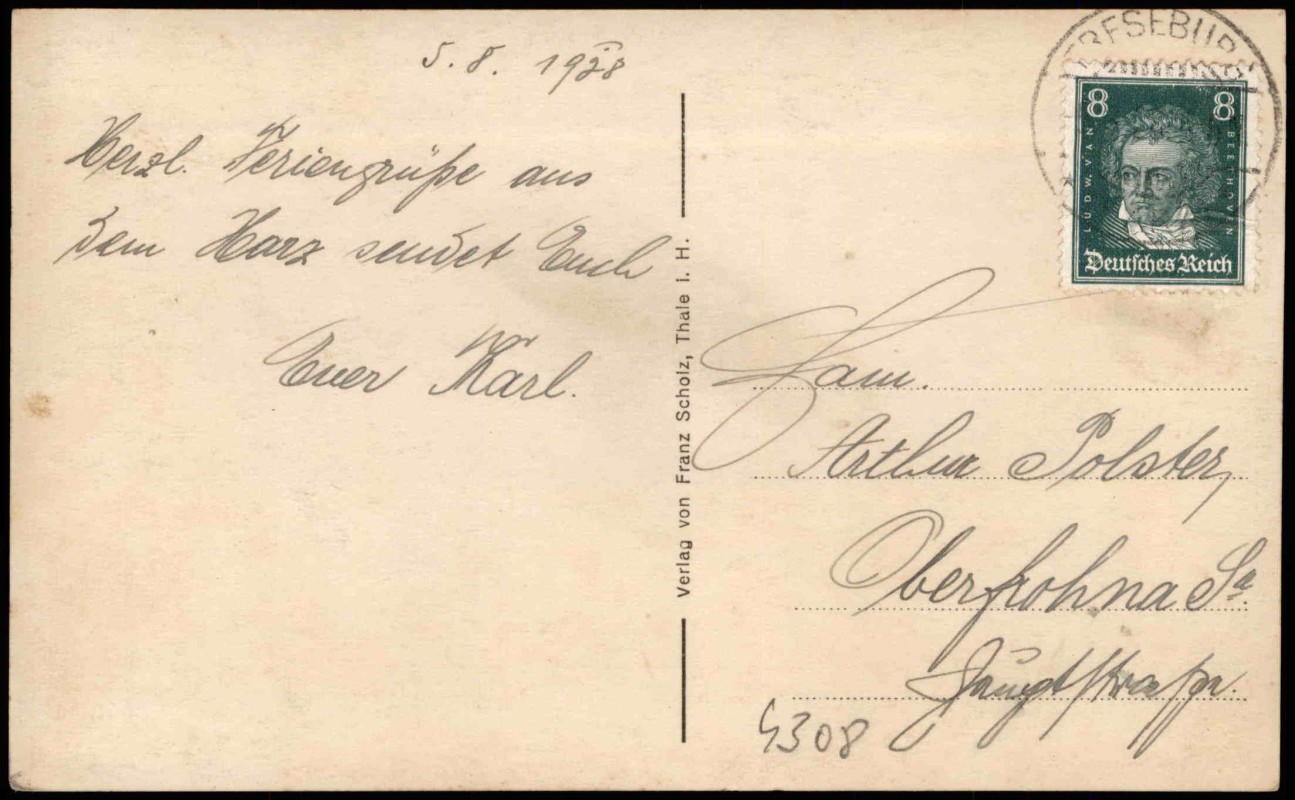 5. 8. 1928
Herzl. Feriengrüße aus
dem Harz sendet Euch
Euer Karl.
Verlag von Franz Scholz, Thale i. H.
8 8
LUDW. VAN
BEETHOVEN
Deutsches Reich
Fam.
Arthur Polster,
Oberfrohna Sa.
Hauptstraße.
4308